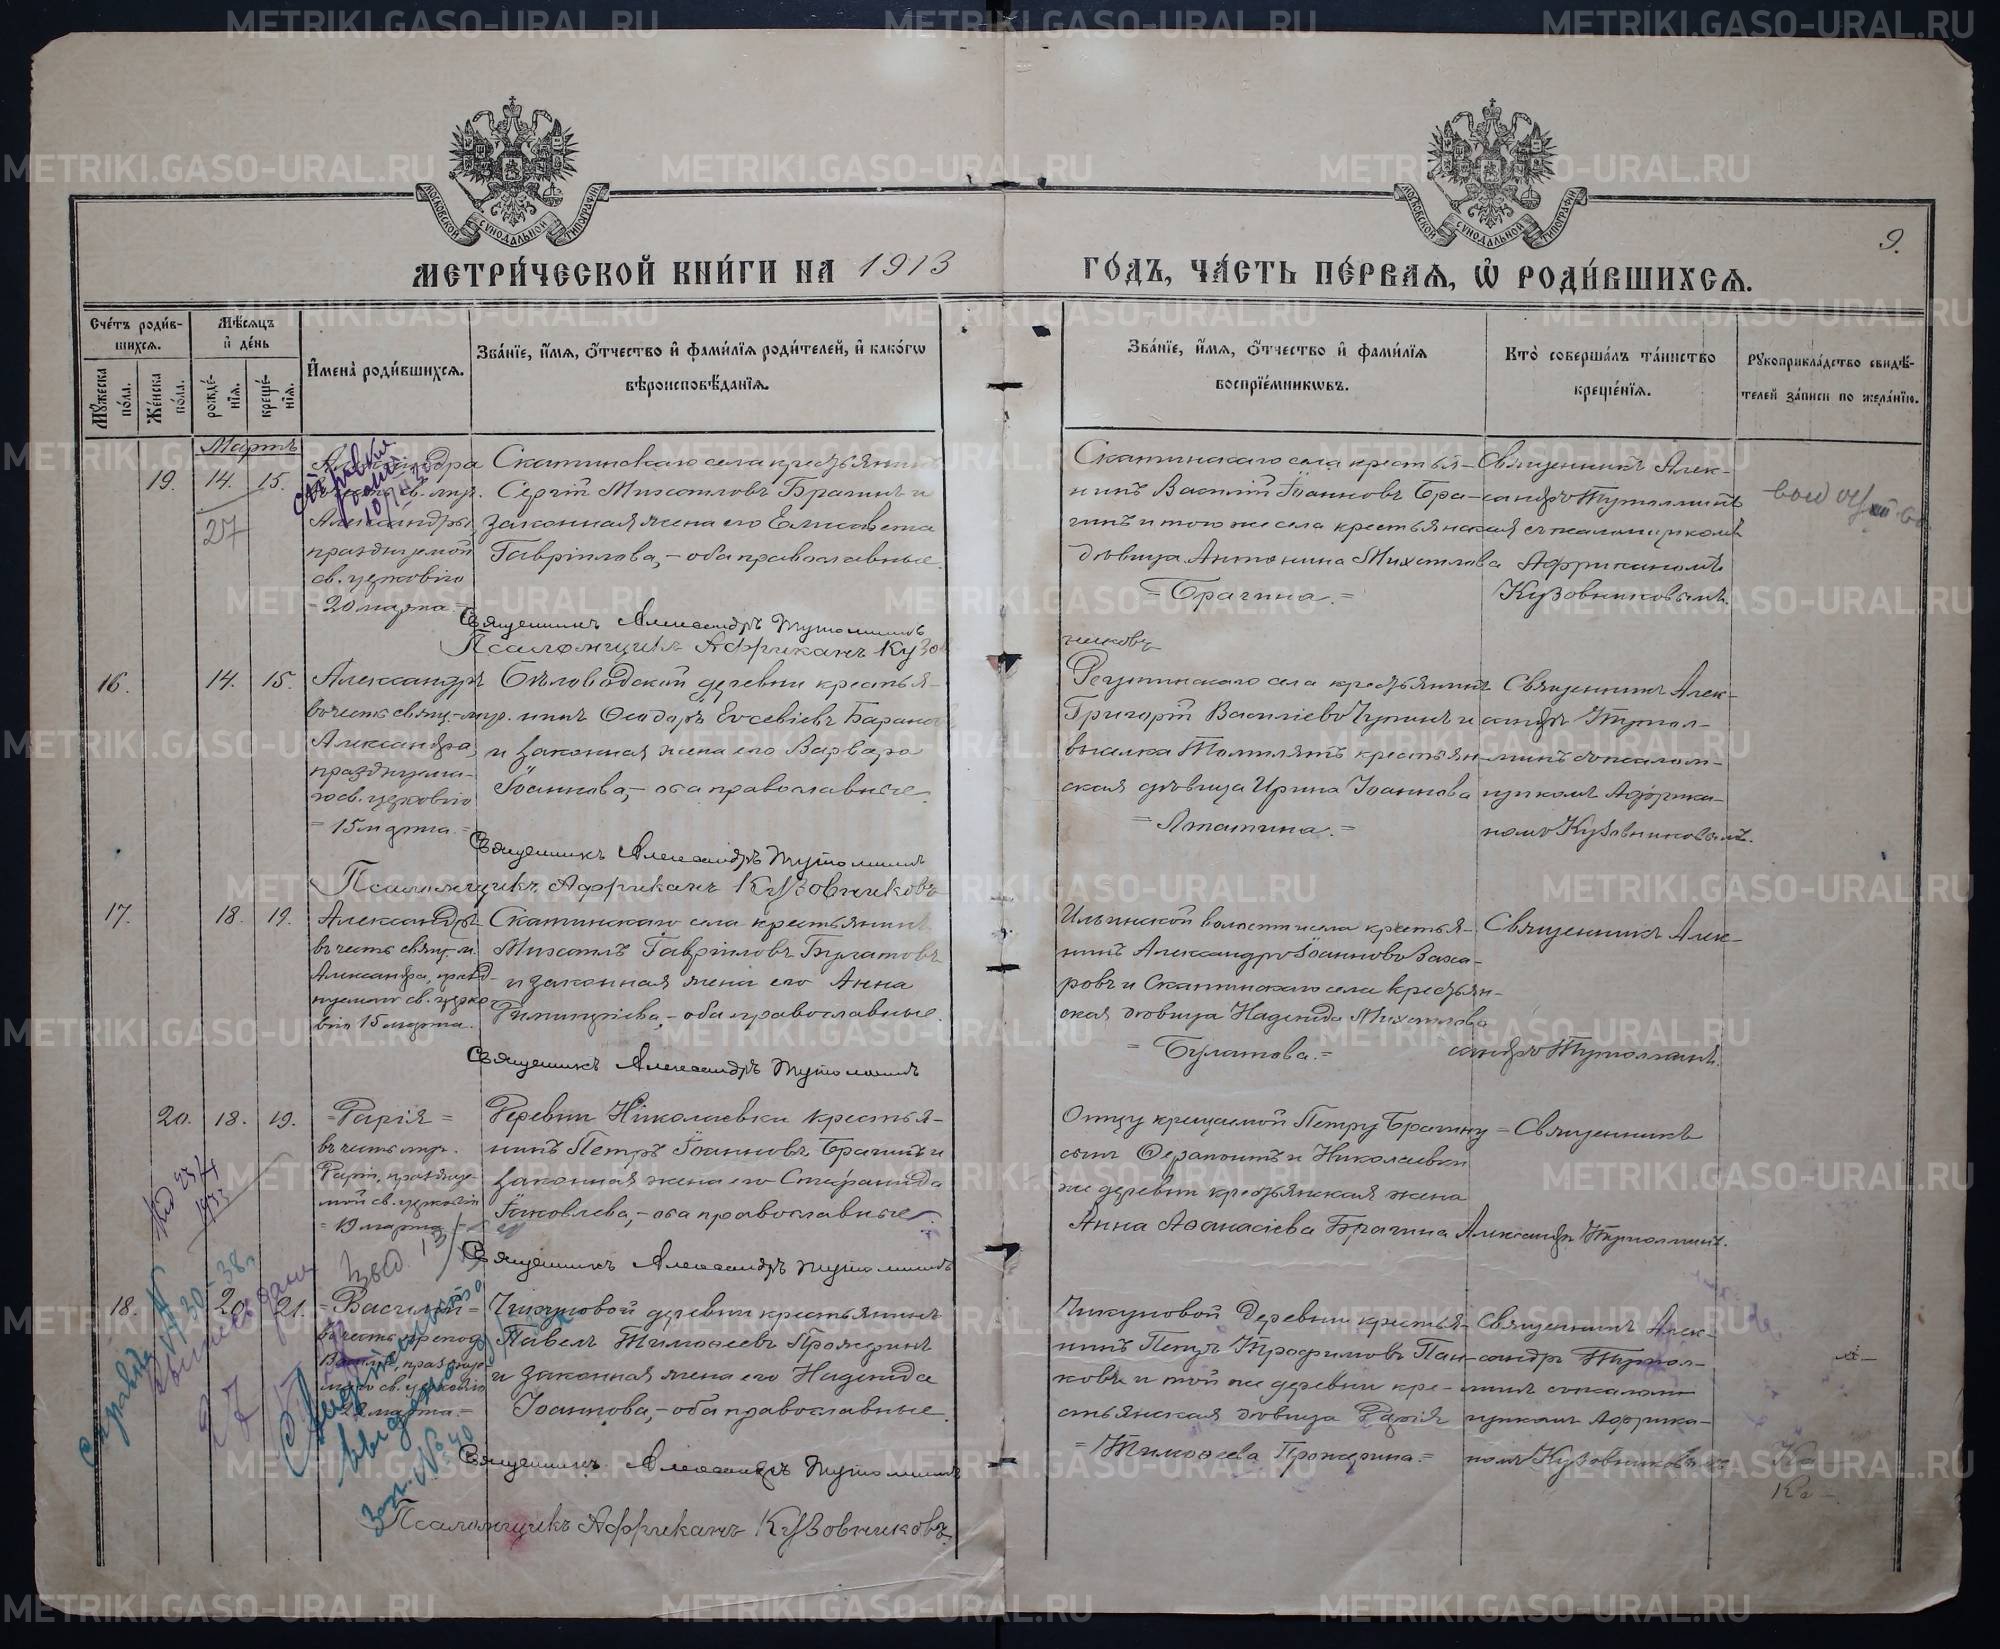 МОСКОВСКОЙ СУНОДАЛЬНОЙ ТИПОГРАФІИ
МОСКОВСКОЙ СУНОДАЛЬНОЙ ТИПОГРАФІИ
9.
МЕТРИ́ЧЕСКОЙ КНИ́ГИ НА 1913
ГО́ДЪ, ЧА́СТЬ ПЕ́РВАѦ, Ѡ РОДИ́ВШИХСѦ.
Сче́тъ роди́в-
шихсѧ.
Мꙋжеска по́ла.
Же́нска по́ла.
Мѣ́сѧцъ и де́нь
рожде́нїѧ.
креще́нїѧ.
Имена̀ роди́вшихсѧ.
Зва́нїе, и́мѧ, о́тчество и фами́лїѧ роди́телей, и како́гѡ
вѣроисповѣ́данїѧ.
Зва́нїе, и́мѧ, о́тчество и фами́лїѧ
воспрїе́мникѡвъ.
Кто̀ соверша́лъ та́инство
креще́нїѧ.
Рꙋкоприкла́дство свидѣ́-
телей за́писи по жела́нїю.
Мартъ
19. 14. 15.
27
Александра
въ честь св. мур.
Александры,
празднуемой
св. церковію
20 марта.=
Скатинскаго села крестьянинъ
Сергій Михаиловъ Брагинъ и
законная жена его Елисавета
Гавріилова,- оба православные.
Священникъ Александръ Тутолминъ
Псаломщикъ Африканъ Кузов
никовъ
Скатинскаго села крестья-
нинъ Василій Іоанновъ Бра-
гинъ и того же села крестьянская
дѣвица Антонина Михаилова
= Брагина.=
Священникъ Алек-
сандръ Тутолминъ
съ псаломщикомъ
Африканомъ
Кузовниковымъ.
16. 14. 15.
Александръ
въ честь свящ.-мур.
Александра,
празднуема-
го св. церковію
= 15 марта.=
Бѣловодской деревни крестья-
нинъ Ѳеодоръ Евсевіевъ Баранов
и законная жена его Варвара
Іоаннова,- оба православные.
Священникъ Александръ Тутолминъ
Псаломщикъ Африканъ Кузовниковъ
села крестьянинъ
Григорій Василіевъ Чупинъ и
выселка крестьян-
ская дѣвица Ирина Іоаннова
=
Священникъ Алек-
сандръ Тутол-
минъ съ псалом-
щикомъ Африка-
номъ Кузовниковымъ.
17. 18. 19.
Александръ
въ честь свящ.-м.
Александра, празд-
нуемаго св. церко-
вію 15 марта.
Скатинскаго села крестьянинъ
Михаилъ Гавріиловъ Булатовъ
и законная жена его Анна
оба православные.
Священникъ Александръ Тутолминъ
Ильинской волости села крестья-
нинъ Александръ Іоанновъ Заха-
ровъ и Скатинскаго села крестьян-
ская дѣвица Надежда Михаилова
= Булатова.=
Священникъ Алек-
сандръ Тутолминъ.
20. 18. 19.
въ честь мур.
празднуе-
мой св. церковію
= 19 марта =
Деревни Николаевки крестья-
нинъ Петръ Іоанновъ Брагинъ и
законная жена его Стефанида
Іаковлева,- оба православные.
Священникъ Александръ Тутолминъ
Отцу крещаемой Петру Брагину
сынъ и Николаевки
же деревни крестьянская жена
Анна Аѳанасіева Брагина
= Священникъ
Александръ Тутолминъ.
18. 20. 21.
= Василій =
въ честь препод.
Василія, празднуе-
маго св. церковію
22 марта.=
Чикуновой деревни крестьянинъ
Павелъ Тимоѳеевъ Прожеринъ
и законная жена его Надежда
Іоаннова,- оба православные.
Священникъ Александръ Тутолминъ
Псаломщикъ Африканъ Кузовниковъ.
Чикуновой деревни крестья-
нинъ Петръ Трофимовъ Пан-
ковъ и той же деревни кре-
стьянская дѣвица
= Тимоѳеева Прожерина.=
Священникъ Алек-
сандръ Тутол-
минъ съ псалом-
щикомъ Африка-
номъ Кузовниковымъ